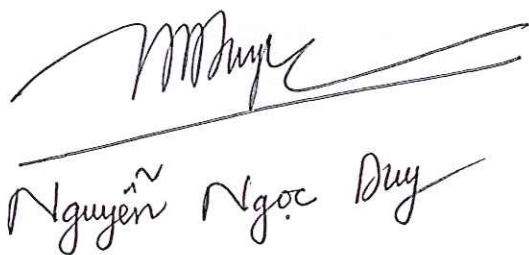 Nguyễn Ngọc Duy